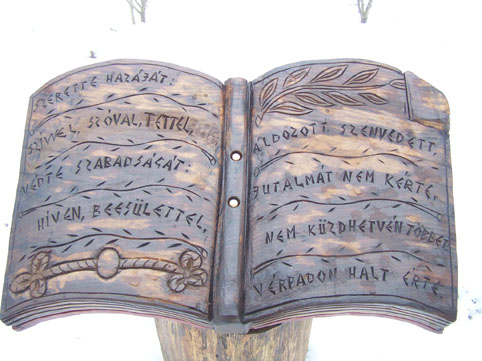 SZERETTE HAZÁJÁT:
SZÍVVEL, SZÓVAL, TETTEL,
VÉDTE SZABADSÁGÁT:
HÍVEN, BECSÜLETTEL,
ÁLDOZOTT, SZENVEDETT,
JUTALMAT NEM KÉRTE,
NEM KÜZDHETVÉN TÖBBET
VÉRPADON HALT ÉRTE.